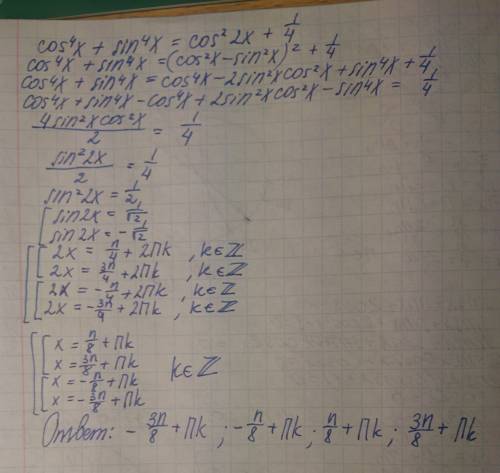 cos⁴x + sin⁴x = cos² 2x + 1/4
cos⁴x + sin⁴x = (cos²x - sin²x)² + 1/4
cos⁴x + sin⁴x = cos⁴x - 2sin²x cos²x + sin⁴x + 1/4
cos⁴x + sin⁴x - cos⁴x + 2sin²x cos²x - sin⁴x = 1/4
4sin²x cos²x/2 = 1/4
sin²2x/2 = 1/4
sin²2x = 1/2
[ sin2x = 1/√2
sin2x = - 1/√2
[ [ 2x = π/4 + 2πk , k∈ℤ
2x = 3π/4 + 2πk , k∈ℤ
[ 2x = -π/4 + 2πk , k∈ℤ
2x = -3π/4 + 2πk , k∈ℤ
[ [ x = π/8 + πk
x = 3π/8 + πk k∈ℤ
[ x = -π/8 + πk
x = -3π/8 + πk
Ответ: - 3π/8 + πk ; -π/8 + πk ; π/8 + πk ; 3π/8 + πk